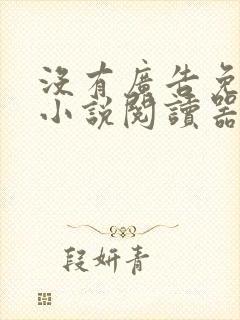 沒有廣告免
小説閱讀器
段妍青